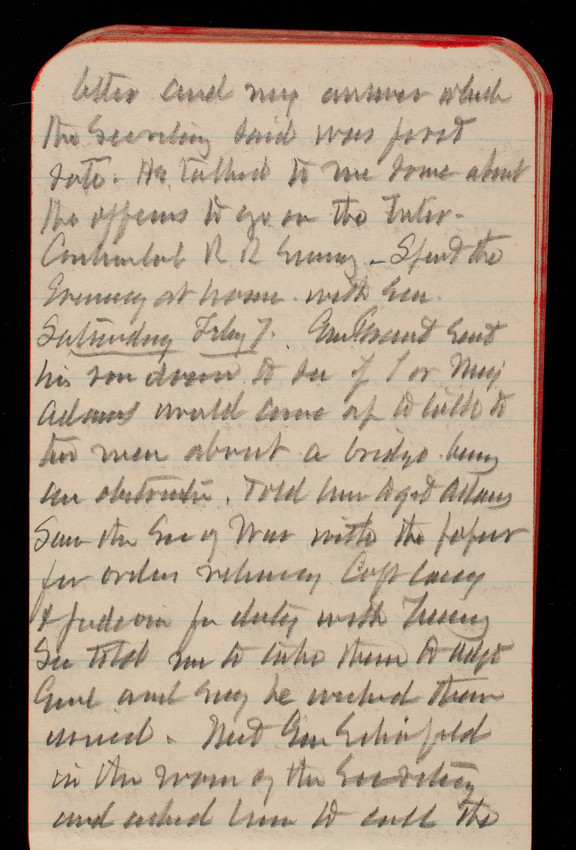 letter and my answer which
the Secretary said was first
rate. He talked to me some about
the officers to go on the Inter-
Continental R R Survey. Spent the
Evening at home with Gen.
Saturday Feby 7. Gen Grant sent
his son down to see if I or Maj
Adams would come up to talk to
two men about a bridge being
an obstructn. Told him to get Adams
Saw the Sec of War with the paper
for orders relieving Capt Casey
& for duty with
Sec told me to take them to Adjt
Genl and say he wished them
issued. Met Gen Schofield
in the room of the Secretary
and asked him to call the